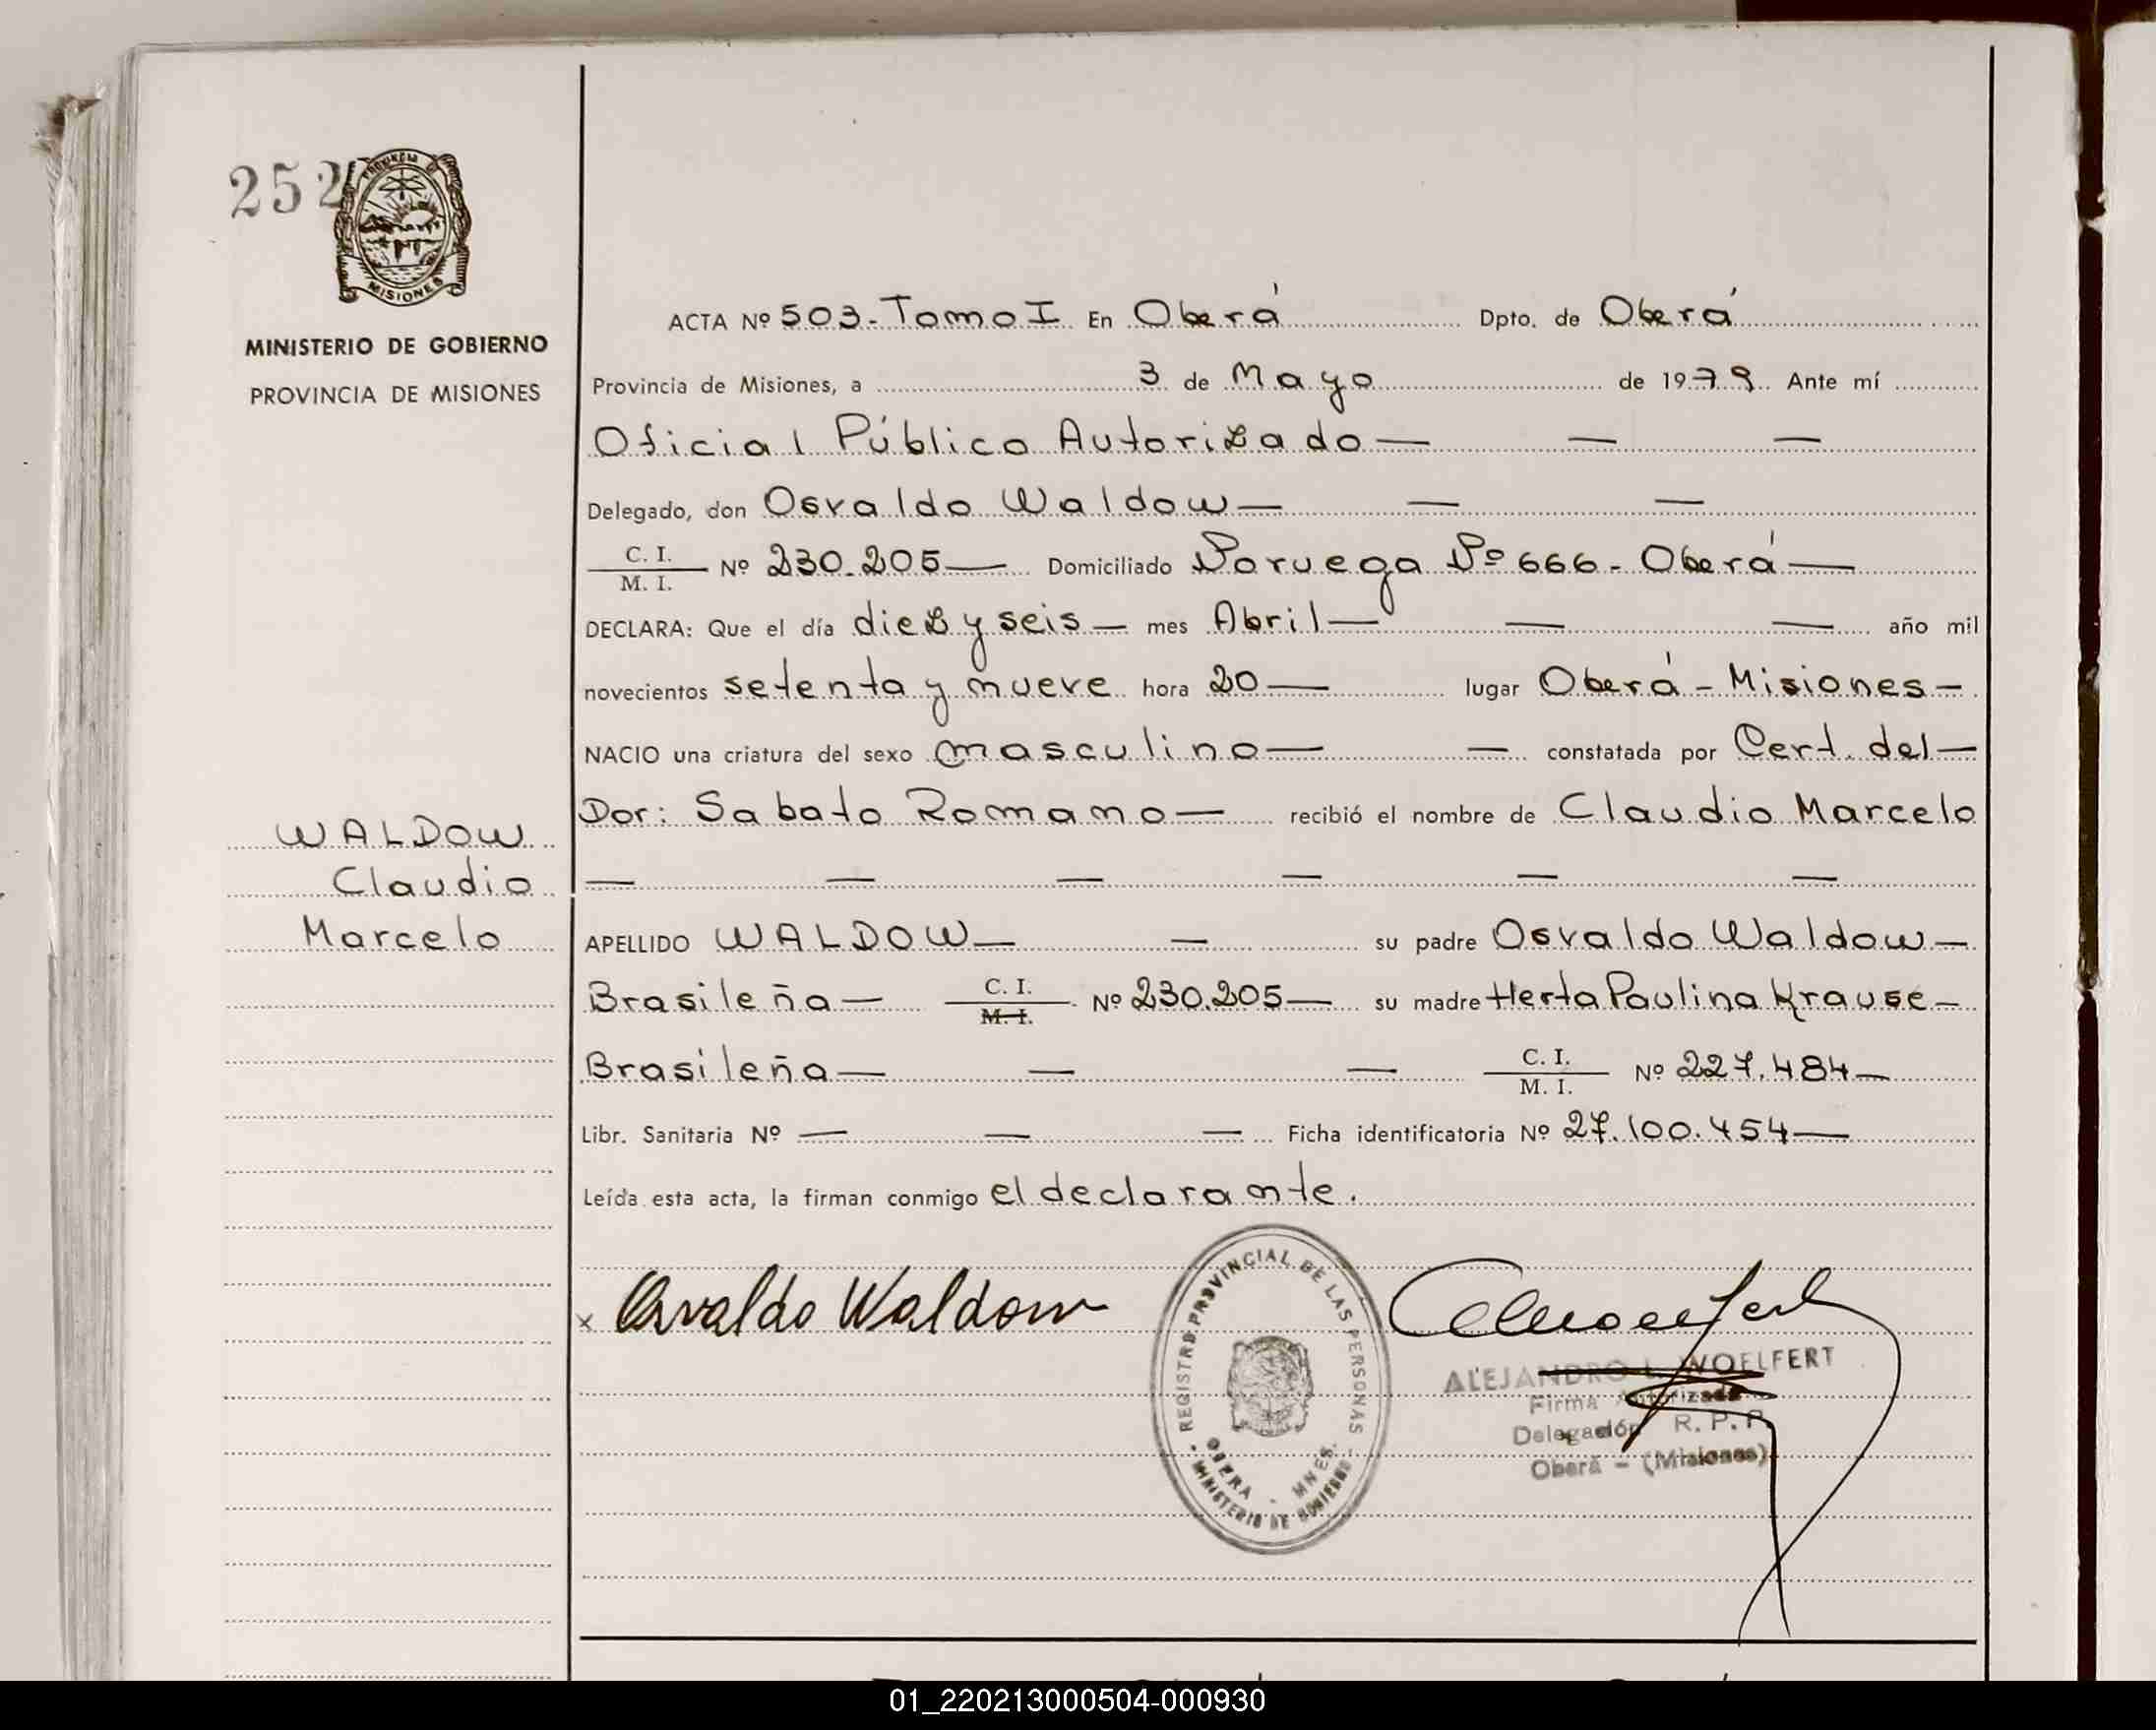 252
PROVINCIA DE
MISIONES
MINISTERIO DE GOBIERNO
PROVINCIA DE MISIONES
WALDOW
Claudio
Marcelo
ACTA Nº 503-Tomo I En Oberá Dpto. de Oberá
Provincia de Misiones, a 3 de Mayo de 1979 Ante mí
Oficial Público Autorizado — — —
Delegado, don Osvaldo Waldow — — —
C. I.
M. I.
Nº 230.205 — Domiciliado Noruega Nº 666 - Oberá —
DECLARA: Que el día diez y seis — mes Abril — — — año mil
novecientos setenta y nueve hora 20 — lugar Oberá - Misiones -
NACIO una criatura del sexo masculino — — constatada por Cert. del —
Dor: Sabato Romano — recibió el nombre de Claudio Marcelo
— — — — — —
APELLIDO WALDOW — — su padre Osvaldo Waldow —
Brasileña — C. I.
M. I.
Nº 230.205 — su madre Herta Paulina Krause —
Brasileña — — — C. I.
M. I.
Nº 227.484 —
Libr. Sanitaria Nº — — — Ficha identificatoria Nº 27.100.454 —
Leída esta acta, la firman conmigo el declarante.
x Osvaldo Waldow
REGISTRO PROVINCIAL DE LAS PERSONAS
OBERA - MNES.
MINISTERIO DE GOBIERNO
ALEJANDRO L. WOELFERT
Firma Autorizada
Delegación R. P. P.
Oberá - (Misiones)
01_220213000504-000930